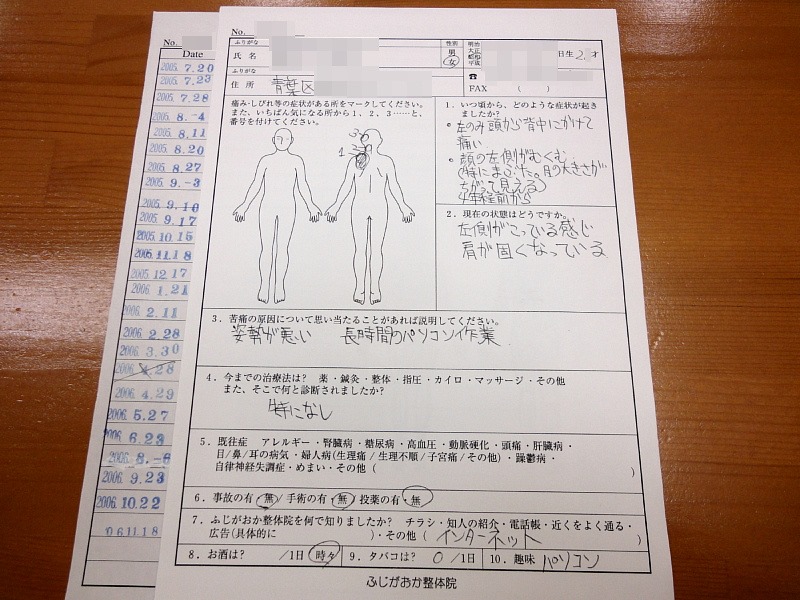 No.
Date
2005. 7. 20
2005. 7. 23
2005. 7. 28
2005. 8. -4
2005. 8. 11
2005. 8. 20
2005. 8. 27
2005. 9. -3
2005. 9. 10
2005. 9. 17
2005. 10. 15
2005. 11. 18
2005. 12. 17
2006. 1. 21
2006. 2. 11
2006. 2. 28
2006. 3. 30
28
2006. 4. 29
2006. 5. 27
2006. 6. 23
2006. 8. -6
2006. 9. 23
2006. 10. 22
061118
No.
ふりがな
氏 名
性別
男
女
明治
大正
昭和
平成
日生 2 才
ふりがな
住 所 青葉区
☎
FAX ( )
痛み・しびれ等の症状がある所をマークしてください。
また、いちばん気になる所から1、2、3……と、
番号を付けてください。
3
1
1．いつ頃から、どのような症状が起き
ましたか?
左のみ頭から背中にかけて
痛い
顔の左側がむくむ
(特にまぶた。目の大きさが
ちがって見える)
4年程前から
2．現在の状態はどうですか。
左側がこっている感じ
肩が固くなっている
3．苦痛の原因について思い当たることがあれば説明してください。
姿勢が悪い 長時間のパソコン作業
4．今までの治療法は? 薬・鍼灸・整体・指圧・カイロ・マッサージ・その他
また、そこで何と診断されましたか?
特になし
5．既往症 アレルギー・腎臓病・糖尿病・高血圧・動脈硬化・頭痛・肝臓病・
目/鼻/耳の病気・婦人病(生理痛/生理不順/子宮痛/その他)・躁鬱病・
自律神経失調症・めまい・その他( )
6．事故の有・無/手術の有・無/投薬の有・無
7．ふじがおか整体院を何で知りましたか? チラシ・知人の紹介・電話帳・近くをよく通る・
広告(具体的に )・その他( インターネット )
8．お酒は? /1日 時々 9．タバコは? 0 /1日 10．趣味 パソコン
ふじがおか整体院